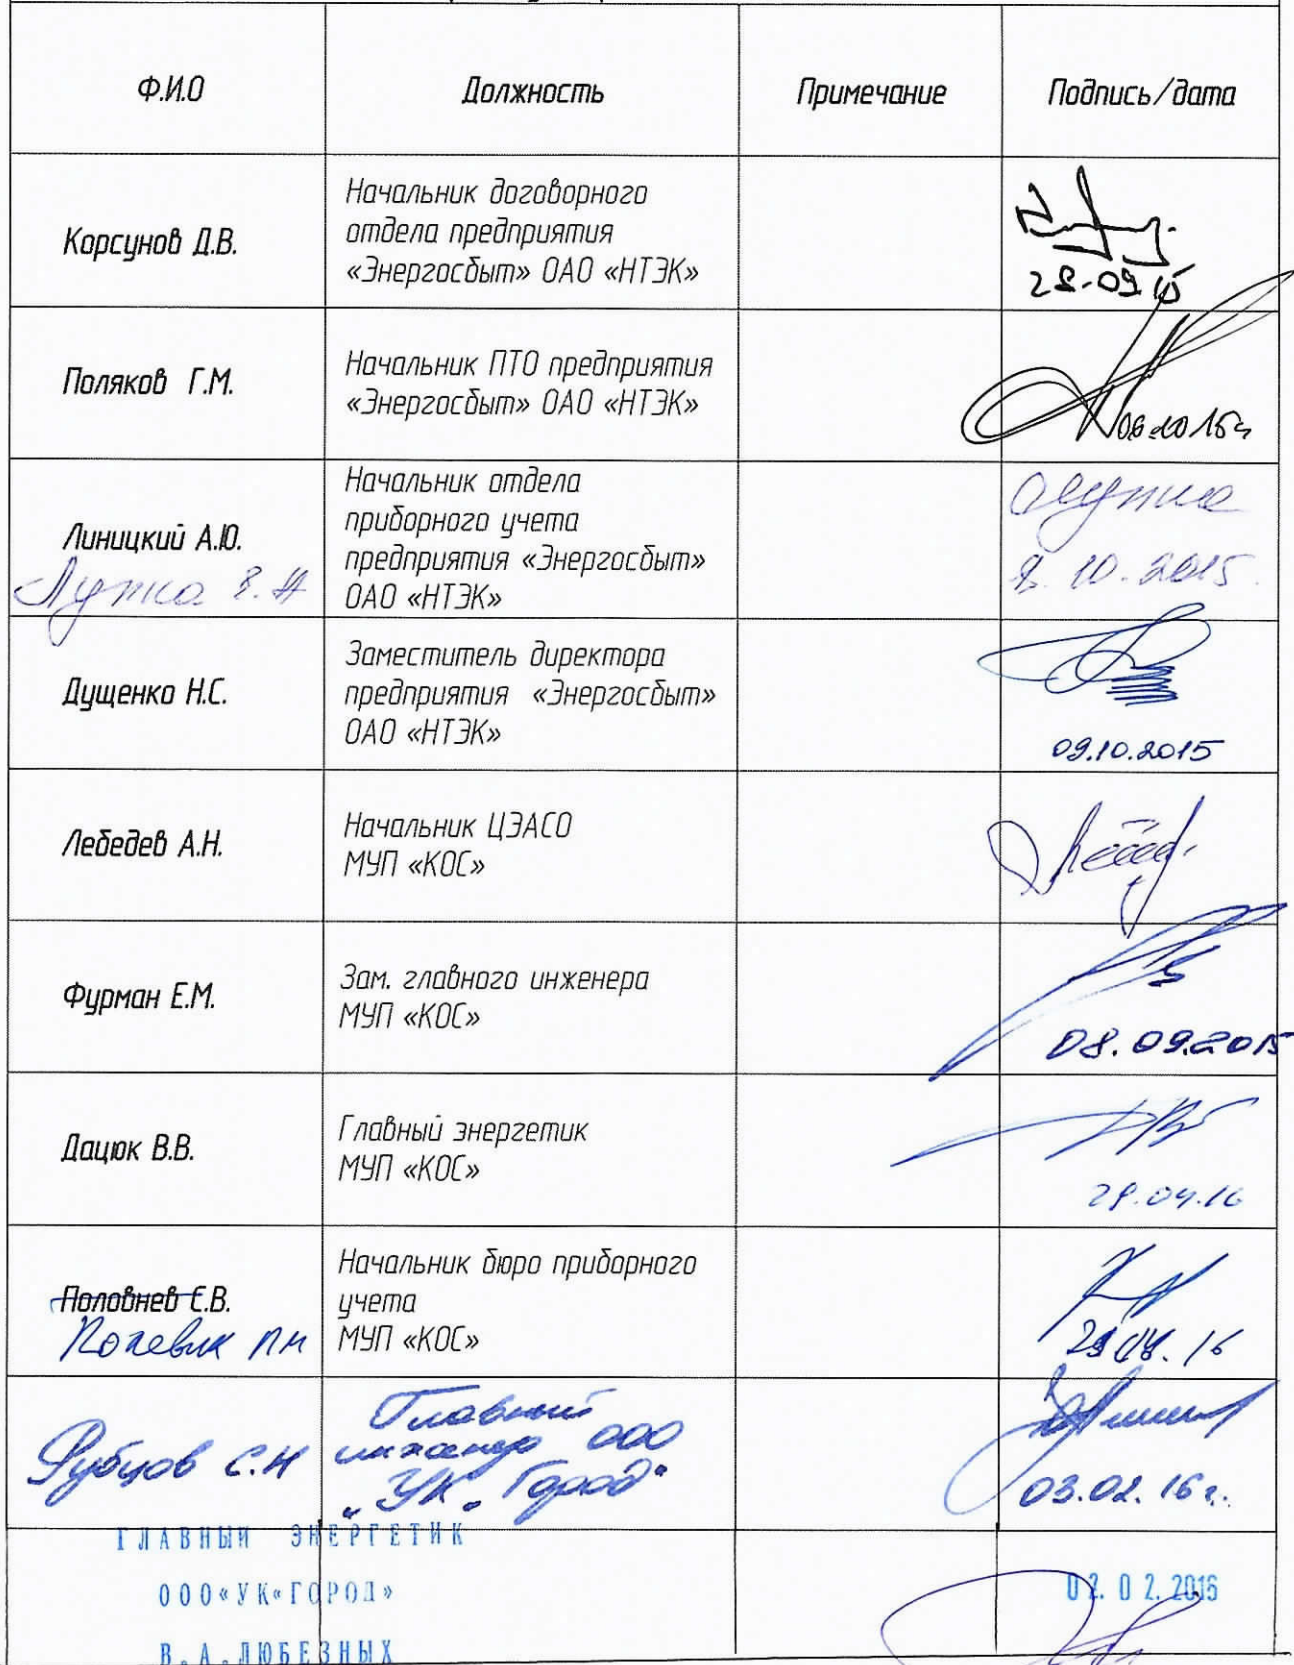 Ф.И.О Должность Примечание Подпись/дата
Корсунов Д.В.
Начальник договорного
отдела предприятия
«Энергосбыт» ОАО «НТЭК»
28.09.15
Поляков Г.М.
Начальник ПТО предприятия
«Энергосбыт» ОАО «НТЭК»
06.10.15г
Линицкий А.Ю.
Лупка З.Н
Начальник отдела
приборного учета
предприятия «Энергосбыт»
ОАО «НТЭК»
8.10.2015.
Дущенко Н.С.
Заместитель директора
предприятия «Энергосбыт»
ОАО «НТЭК»
09.10.2015
Лебедев А.Н.
Начальник ЦЭАСО
МУП «КОС»
Фурман Е.М.
Зам. главного инженера
МУП «КОС»
08.09.2015
Дацюк В.В.
Главный энергетик
МУП «КОС»
29.04.16
Половнев Е.В.
Начальник бюро приборного
учета
МУП «КОС»
16
Рубцов С.Н
Главный
инженер ООО
"УК "Город"
03.02.16г.
ГЛАВНЫЙ ЭНЕРГЕТИК
ООО«УК«ГОРОД»
В.А.ЛЮБЕЗНЫХ
02.02.2016